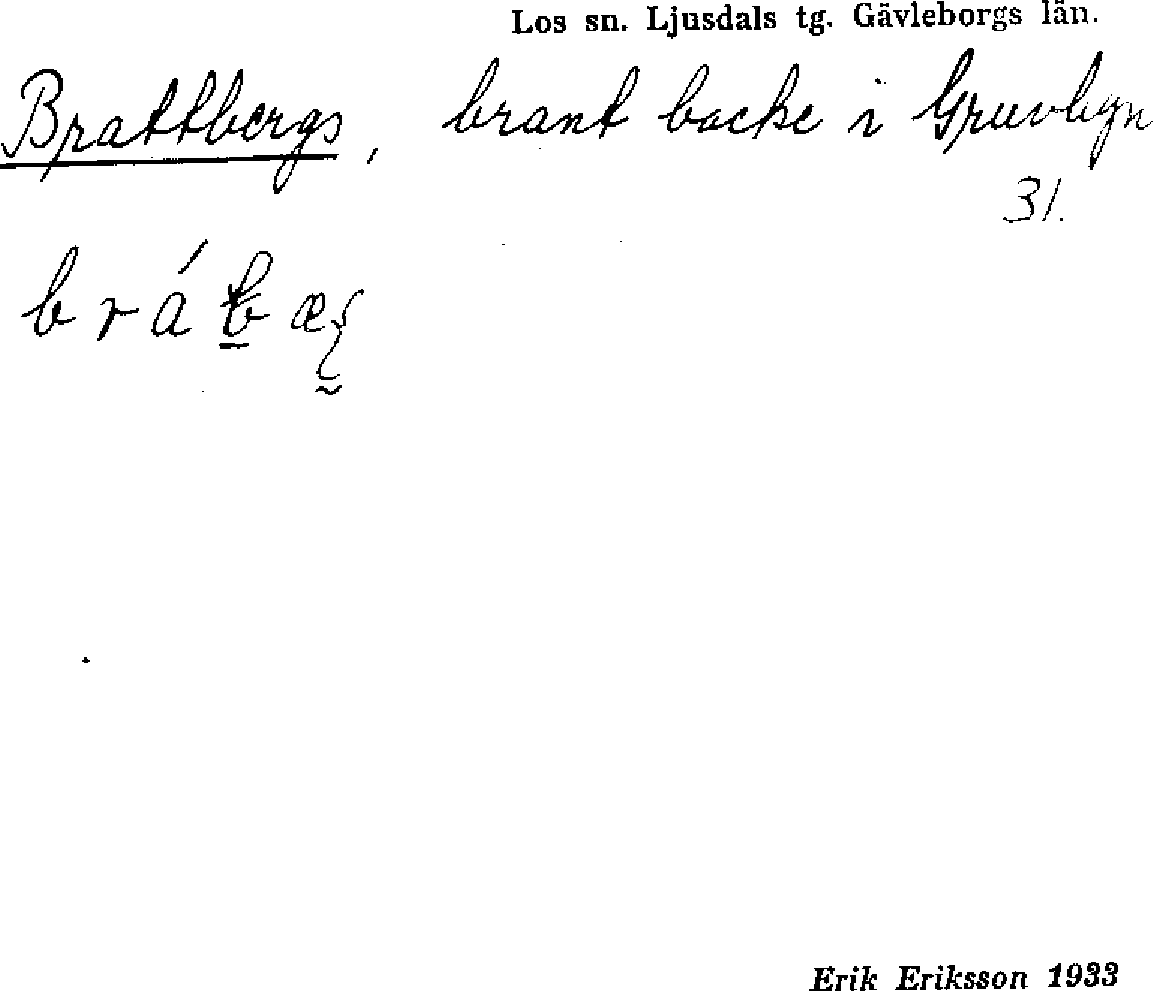 Los sn. Ljusdals tg. Gävleborgs län.
Brattbergs, brant backe i Gruvbyn
31.
Erik Eriksson 1933